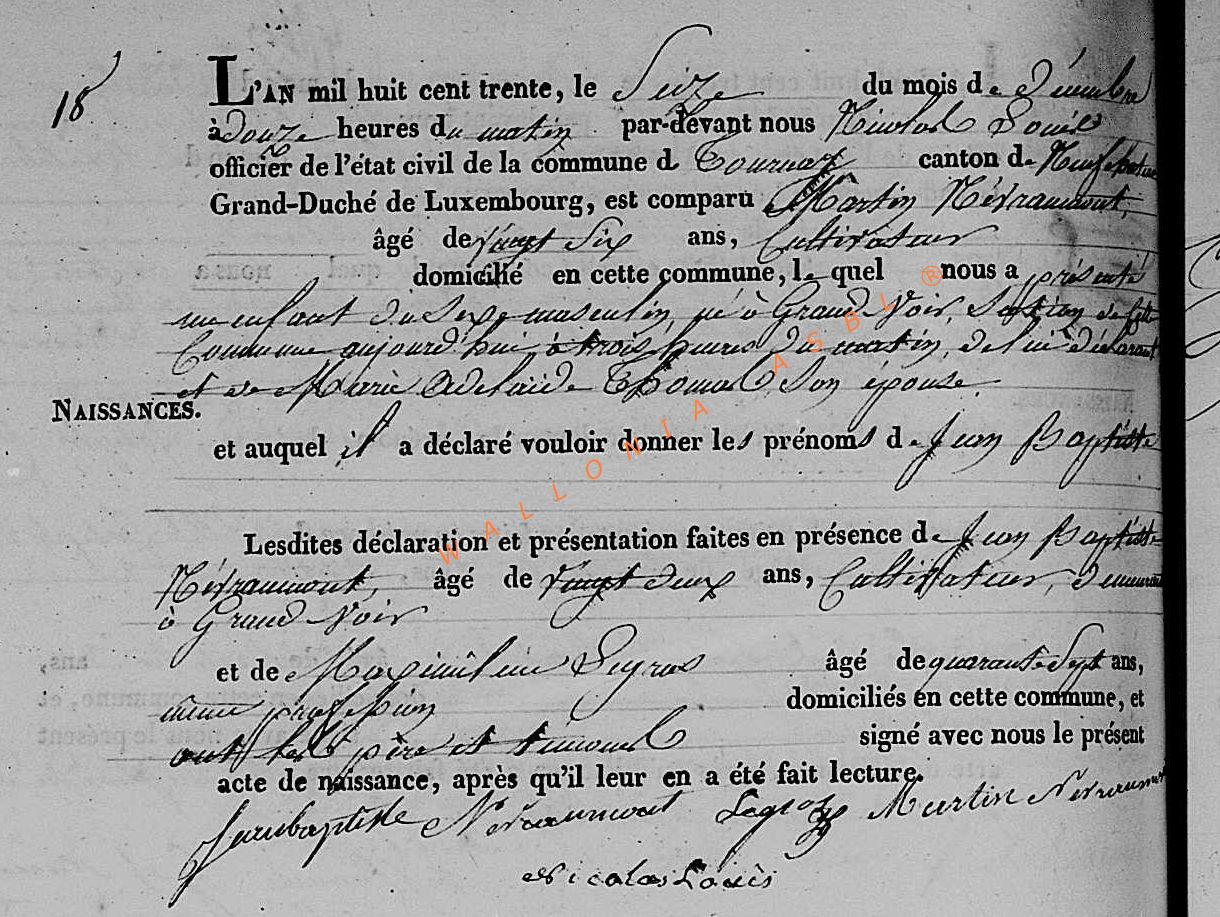 18
L'AN mil huit cent trente, le Seize du mois de Décembre
à douze heures du matin par-devant nous Nicolas Louis
officier de l'état civil de la commune d Tournay canton de Neufchateau
Grand-Duché de Luxembourg, est comparu Martin Névraumont,
âgé de vingt Six ans, Cultivateur
domicilié en cette commune, le quel nous a présenté
un enfant du Sexe masculin, né à Grand Voir, Section de cette
Commune aujourd'hui à trois heures du matin, de lui déclarant
et de Marie Adelaïde Thomas Son épouse.
NAISSANCES.
et auquel il a déclaré vouloir donner les prénoms de Jean Baptiste
Lesdites déclaration et présentation faites en présence de Jean Baptiste
Névraumont, âgé de vingt deux ans, Cultivateur, demeurant
à Grand Voir
et de Maximilien Legros âgé de quarante Sept ans,
même profession domiciliés en cette commune, et
ont les père et témoins signé avec nous le présent
acte de naissance, après qu'il leur en a été fait lecture.
Jeanbaptiste Nevraumont Legros Martin Nevraumont
Nicolas Louis
WALLONIA ASBL ®